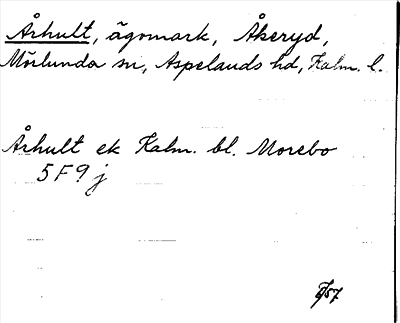 Århult, ägomark, Åkeryd,
Mörlunda sn, Aspelands hd, Kalm. l.
Århult ek Kalm. bl. Morebo
5 F 9 j